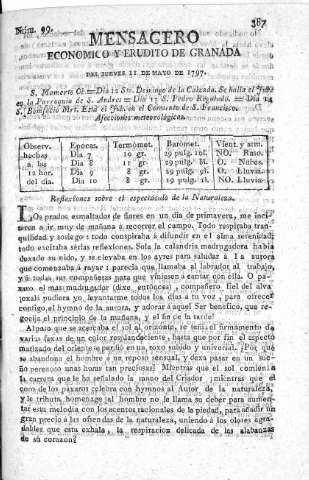 Núm. 99. 387
MENSAGERO
ECONOMICO Y ERUDITO DE GRANADA
DEL JUEVES 11 DE MAYO DE 1797.
S. Mamerto Ob. = Dia 12 Sto. Domingo de la Calzada. Se halla el
en la Parroquia de S. Andres = Dia 13 S. Pedro = Dia 14
S. Bonifacio Mrt. Está el en el Convento de S. Francisco.
Afecciones meteorológicas.
Observ. Epocas. Termómet. Baromet. Vient. y atm.
hechas Dia 7 10 gr. 29 pulg. NO. Raso.
a las Dia 8 11 gr. 29 pulg. O. Nubes.
12 hor. Dia 9 8 gr. 29 pulg. O. Lluvia.
del dia. Dia 10 8 gr. 29 pulg. NO. Lluvia.
Reflexiones sobre el espectáculo de la Naturaleza.
LOs prados esmaltados de flores en un dia de primavera, me inci-
taron á ir muy de mañana á recorrer el campo. Todo respiraba tran-
quilidad y sosiego: todo conspiraba á difundir en el alma serenidad:
todo excitaba sérias reflexiones. Sola la calandria madrugadora habia
dexado su nido, y se elevaba en los ayres para saludar á la aurora
que comenzaba á rayar: parecia que llamaba al labrador al trabajo,
y á todas sus compañeras para que viniesen á cantar con ella. O pá-
xaro el mas madrugador (dixe, entónces), compañero fiel del alva
¡oxalá pudiera yo levantarme todos los dias á tu voz, para ofrecer
contigo, el hymno de la aurora, y adorar á aquel Ser benéfico, que re-
gocija el principio de la mañana, y el fin de la tarde!
Al paso que se acercaba el sol al orizonte, se teñia el firmamento de
varias faxas de un color resplandeciente, hasta que por fin el aspecto
matizado del oriente se perdió en un roxo subido y universal. ¡Por qué
se abandona el hombre á un reposo sensual, y dexa pasar en un sue-
ño perezoso unas horas tan preciosas! Mientras que el sol comienza
la carrera que le ha señalado la mano del Criador ¡mientras que el
coro de los páxaros celebra con hymnos al Autor de la naturaleza,
y le tributa homenage ¡al hombre no le llama su deber para aumen-
tar esta melodía con los acentos racionales de la piedad, para añadir un
gran precio á las ofrendas de la naturaleza, uniendo á los olores agra-
dables que esta exhala, la respiracion delicada de las alabanzas
de su corazon?